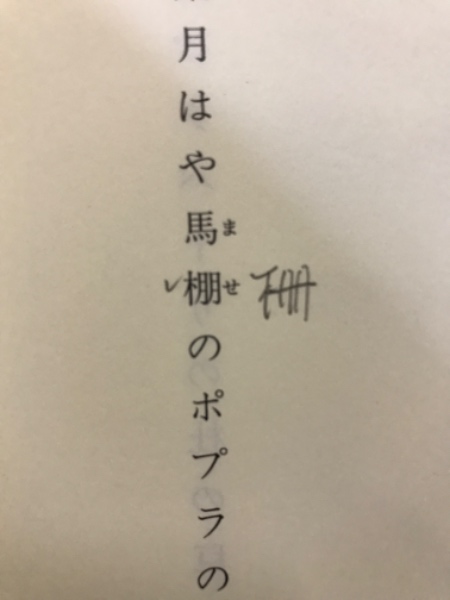 月はや馬棚のポプラの
ませ
柵